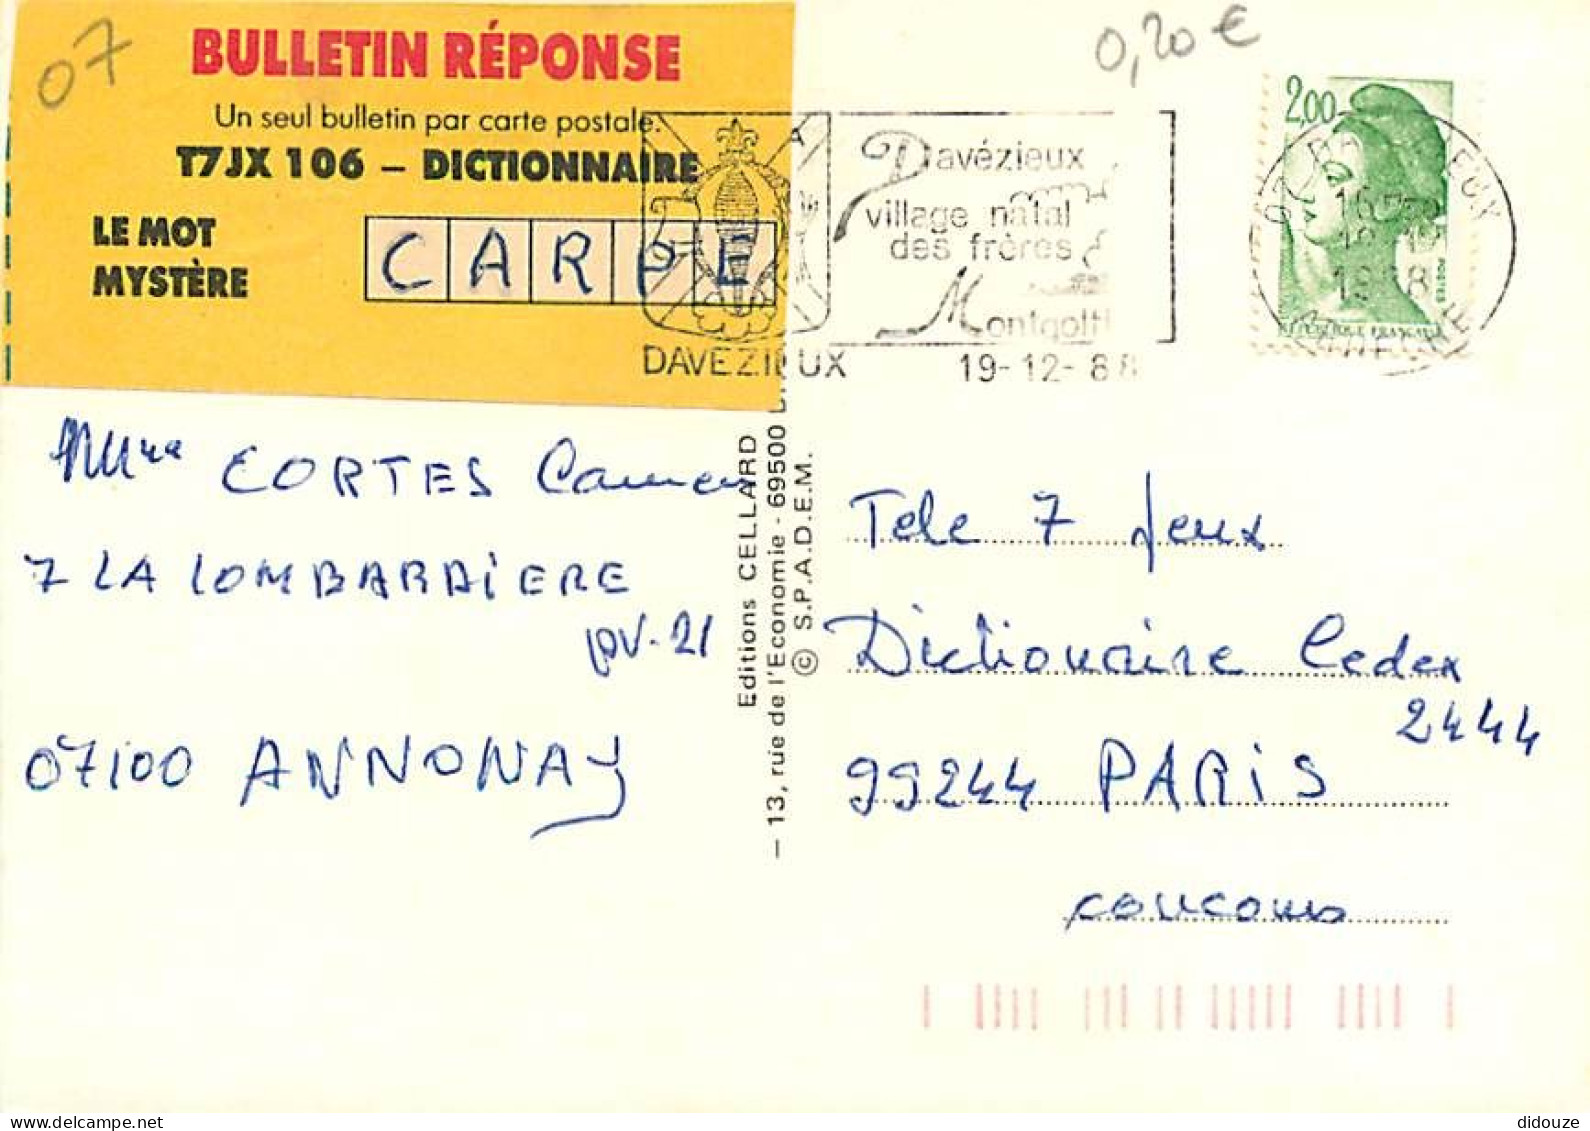 07
BULLETIN RÉPONSE
Un seul bulletin par carte postale.
T7JX 106 – DICTIONNAIRE
LE MOT
MYSTÈRE
CARPE
0,20 €
Davézieux
village natal
des frères
Montgolfi
DAVEZIEUX
19-12-88
2,00
POSTES
RÉPUBLIQUE FRANÇAISE
07 DAVEZIEUX
19-12
1988
ARDECHE
CORTES Carmen
7 LA LOMBARDIERE
07100 ANNONAY
Editions CELLARD
— 13, rue de l'Economie - 69500
© S.P.A.D.E.M.
Tele 7 Jeux
Dictionaire Cedex
2444
99244 PARIS
concours
didouze